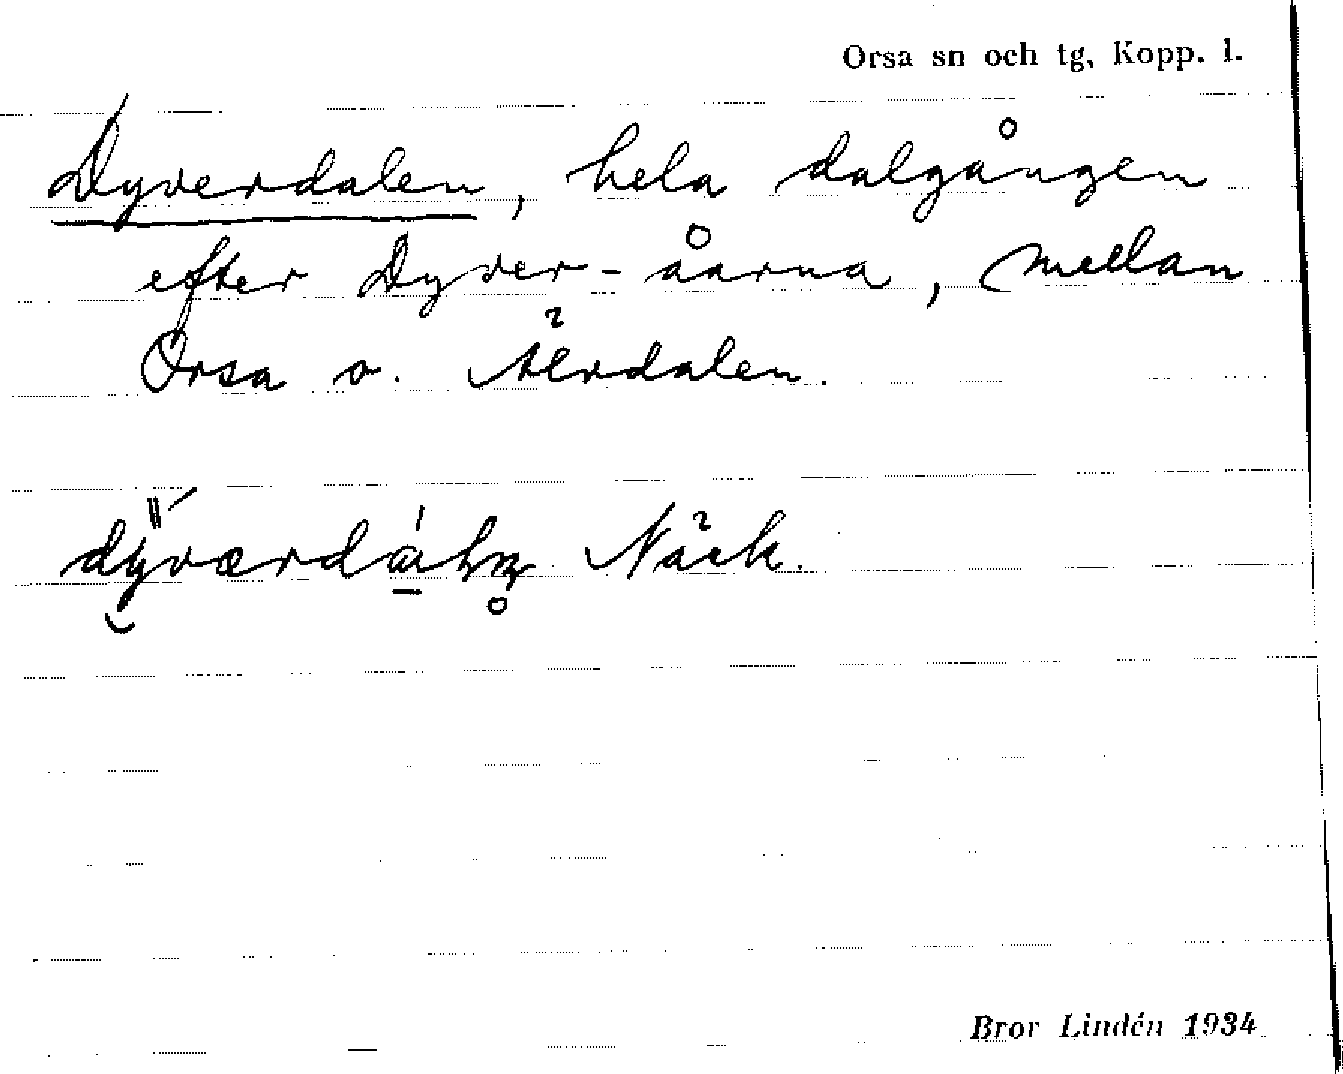 Orsa sn och tg, Kopp. l.
Dyverdalen, hela dalgången
efter Dyver-åarna, mellan
Orsa o. Älvdalen.
Näck.
Bror Lindén 1934